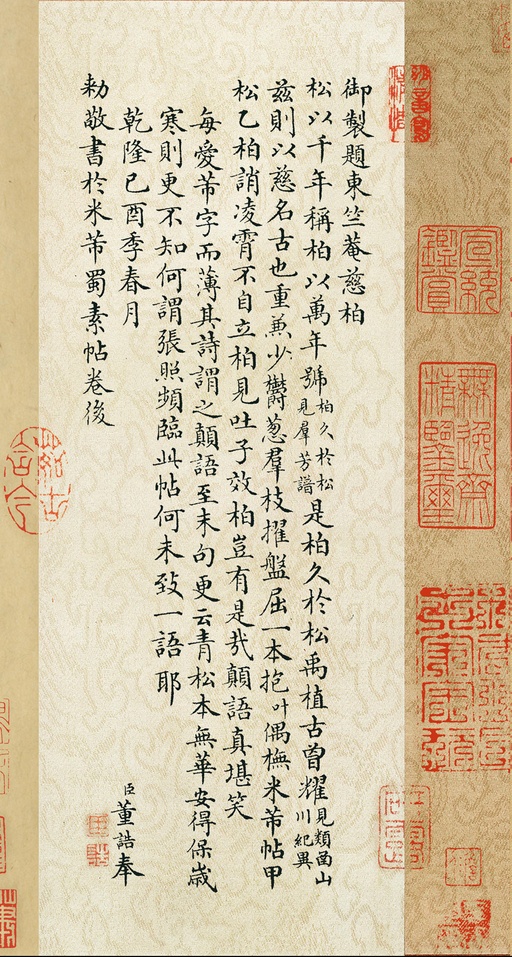 御製題東竺菴慈柏
松以千年稱柏以萬年號柏久於松見羣芳譜是柏久於松禹植古曾耀見類函山川紀異
茲則以慈名古也重兼少欝蔥羣枝擢盤屈一本抱叶偶橅米芾帖甲
松乙柏誚凌霄不自立柏見吐子效柏豈有是哉顛語真堪笑
每愛芾字而薄其詩謂之顛語至末句更云青松本無華安得保歲
寒則更不知何謂張照頻臨此帖何未致一語耶
乾隆己酉季春月
臣董誥奉
勑敬書於米芾蜀素帖卷後
宣統鑑賞
無逸齋精鑒璽